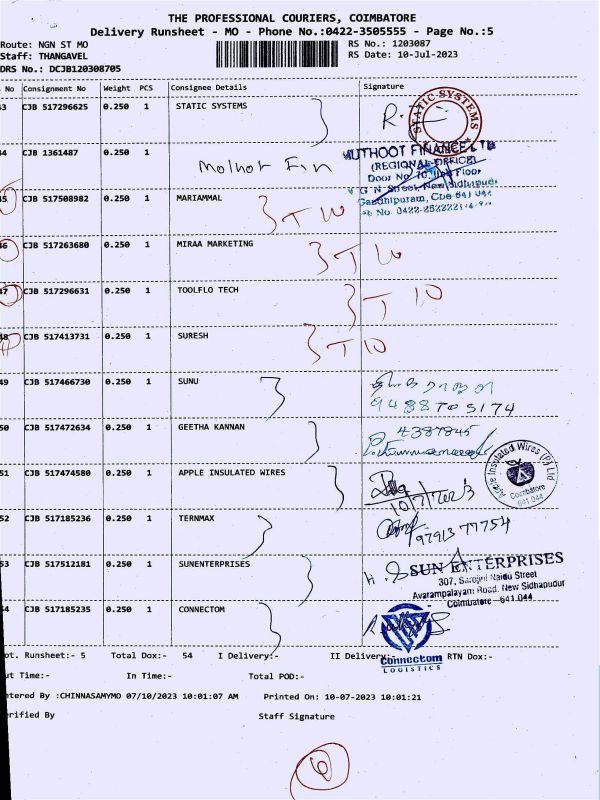 THE PROFESSIONAL COURIERS, COIMBATORE
Delivery Runsheet - MO - Phone No.:0422-3505555 - Page No.:5
Route: NGN ST MO RS No.: 1203087
Staff: THANGAVEL RS Date: 10-Jul-2023
DRS No.: DCJB120308705
No Consignment No Weight PCS Consignee Details Signature
3 CJB 517296625 0.250 1 STATIC SYSTEMS
STATIC SYSTEMS
4 CJB 1361487 0.250 1
MUTHOOT FINANCE LTD
(REGIONAL OFFICE)
Door No. 70, IInd Floor
G N Street, New Sidhapudur
Gandhipuram, Cbe 641 044
5 CJB 517508982 0.250 1 MARIAMMAL
6 CJB 517263680 0.250 1 MIRAA MARKETING
47 CJB 517296631 0.250 1 TOOLFLO TECH
T 10
48 CJB 517413731 0.250 1 SURESH
T 10
49 CJB 517466730 0.250 1 SUNU
50 CJB 517472634 0.250 1 GEETHA KANNAN
4387845
51 CJB 517474580 0.250 1 APPLE INSULATED WIRES
10/7/2023
Apple Insulated Wires (P) Ltd
Coimbatore
641 044
52 CJB 517185236 0.250 1 TERNMAX
53 CJB 517512181 0.250 1 SUNENTERPRISES
SUN ENTERPRISES
307, Sarojini Naidu Street
Avarampalayam Road, New Sidhapudur
Coimbatore - 641 044
54 CJB 517185235 0.250 1 CONNECTOM
Connectom
LOGISTICS
ot. Runsheet:- 5 Total Dox:- 54 I Delivery:- II Delivery:- RTN Dox:-
ut Time:- In Time:- Total POD:-
ntered By :CHINNASAMYMO 07/10/2023 10:01:07 AM Printed On: 10-07-2023 10:01:21
rified By Staff Signature
6